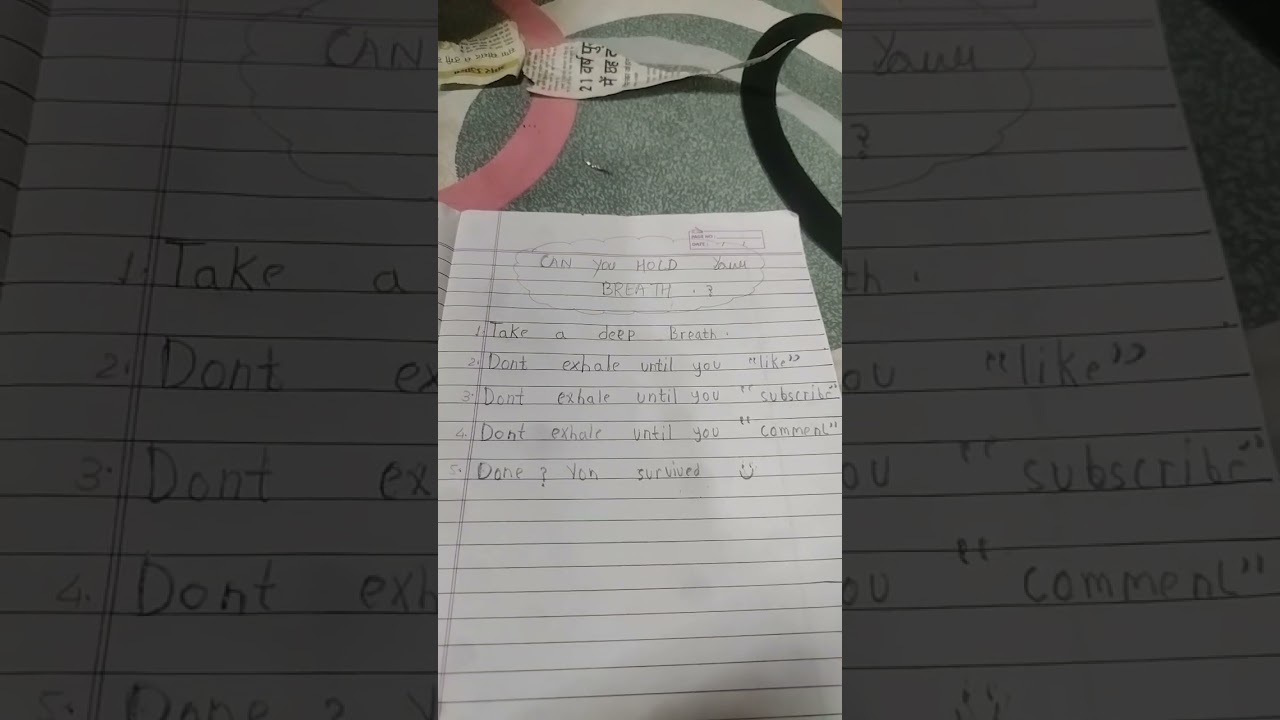 21 वर्ष पु
में छह ट
PAGE NO.
DATE:
CAN YOU HOLD Your
BREATH . ?
1. Take a deep Breath .
2. Dont exhale until you "like"
3. Dont exhale until you "subscribe"
4. Dont exhale until you "comment"
5. Done ? You survived